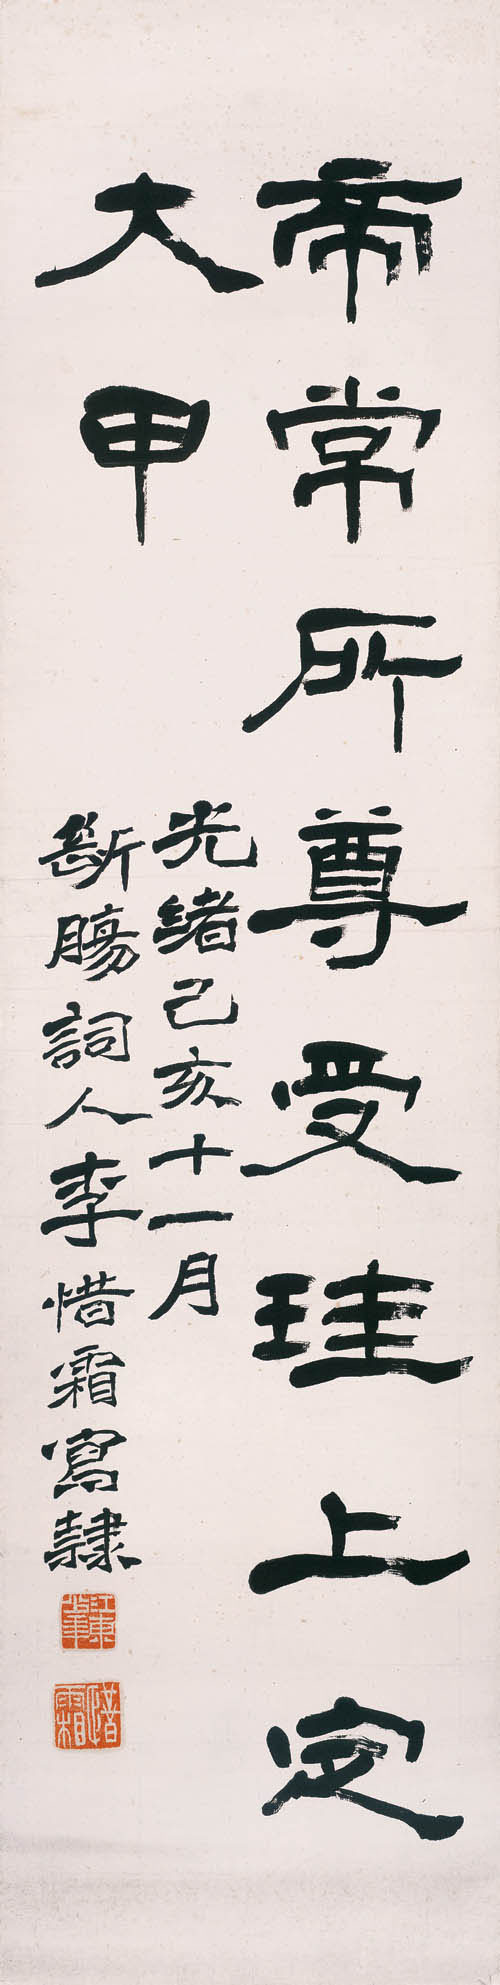 帝常所尊受珪上定
大甲
光緒己亥十一月
斷腸詞人李惜霜寫隸
江東少年
惜霜